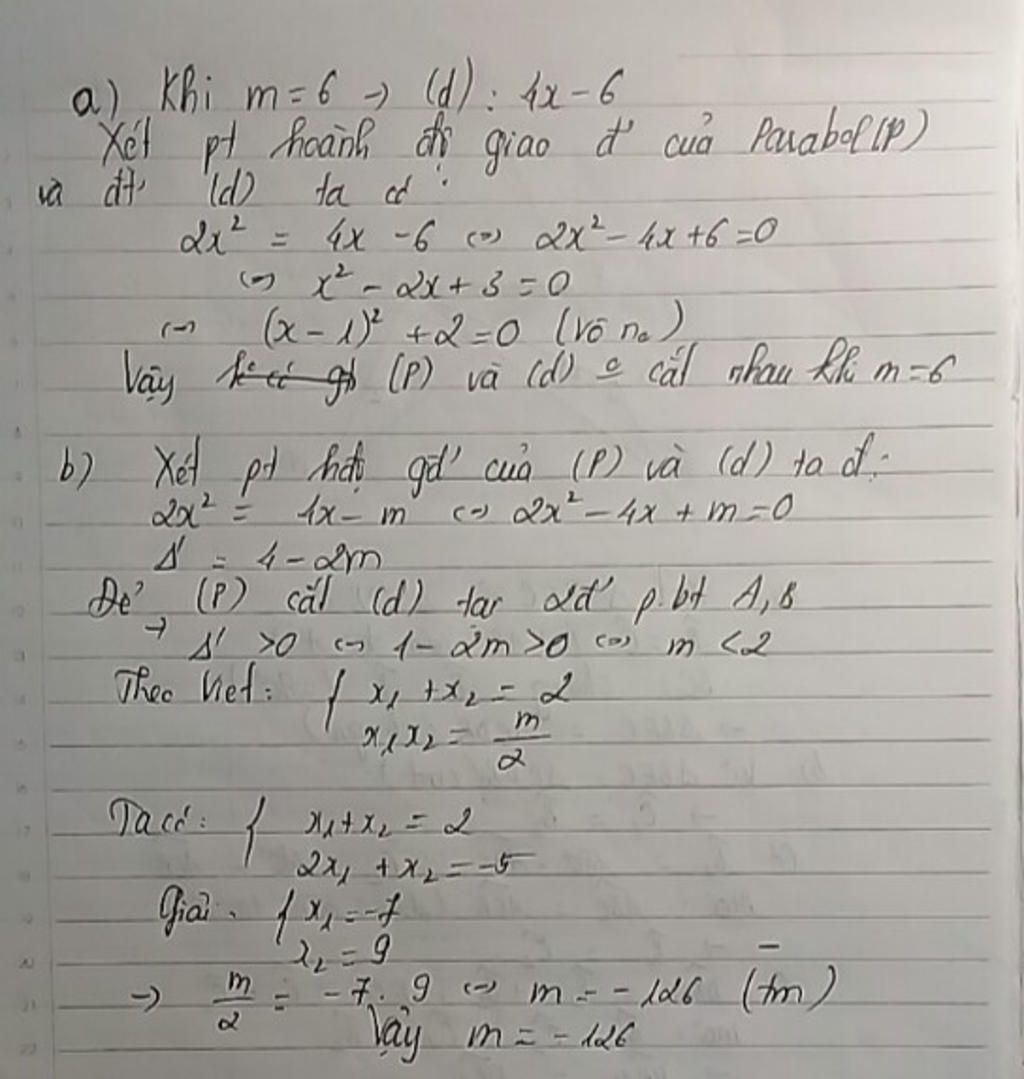 a) Khi m = 6 → (d) : 4x - 6
Xét pt hoành độ giao đ' của Parabol (P)
và đt' (d) ta có :
2x² = 4x - 6 ⇔ 2x² - 4x + 6 = 0
⇔ x² - 2x + 3 = 0
⇔ (x - 1)² + 2 = 0 (Vô no)
Vậy (P) và (d) cắt nhau khi m = 6
b) Xét pt hđộ gđ' của (P) và (d) ta đ :
2x² = 4x - m ⇔ 2x² - 4x + m = 0
Δ' = 4 - 2m
Để (P) cắt (d) tại 2đ' p.bt A, B
→ Δ' > 0 ⇔ 4 - 2m > 0 ⇔ m < 2
Theo Viet : { x₁ + x₂ = 2
x₁x₂ = m/2
Ta có : { x₁ + x₂ = 2
2x₁ + x₂ = -5
Giải . { x₁ = -7
x₂ = 9
→ m/2 = -7 . 9 ⇔ m = -126 (tm)
Vậy m = -126